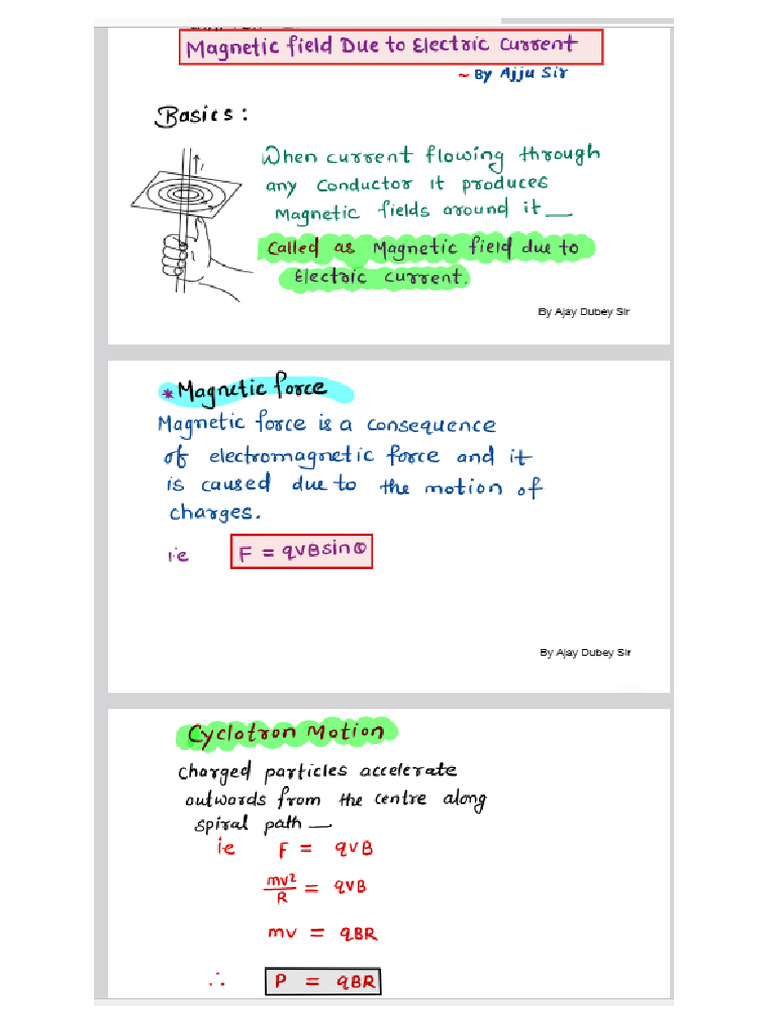 Magnetic field Due to Electric Current
~ By Ajju Sir
Basics :
When current flowing through
any conductor it produces
Magnetic fields around it __
Called as Magnetic field due to
Electric current.
By Ajay Dubey Sir
* Magnetic force
Magnetic force is a consequence
of electromagnetic force and it
is caused due to the motion of
charges.
i.e F = qVBsinθ
By Ajay Dubey Sir
Cyclotron Motion
Charged particles accelerate
outwords from the centre along
spiral path __
ie F = qVB
mv²/R = qVB
mv = qBR
∴ P = qBR